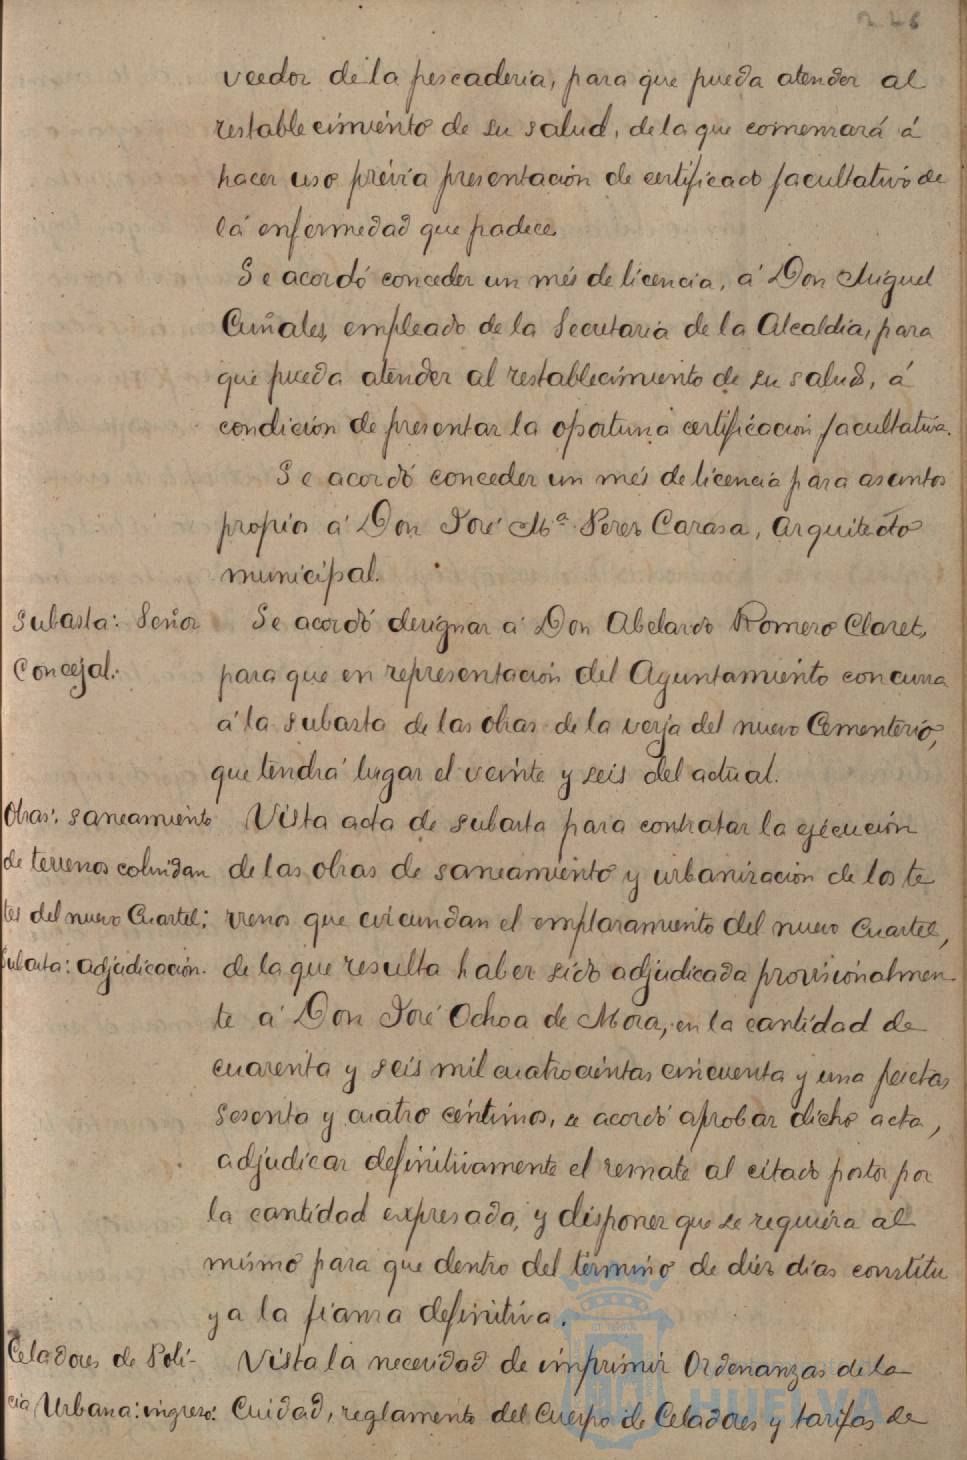 226
veedor de la pescadería, para que pueda atender al
restablecimiento de su salud, de la que comenzará á
hacer uso prévia presentación de certificado facultativo de
la enfermedad que padece.
Se acordó conceder un més de licencia, á Don Miguel
Cuñales, empleado de la Secretaria de la Alcaldía, para
que pueda atender al restablecimiento de su salud, á
condición de presentar la oportuna certificación facultativa.
Se acordó conceder un més de licencia para asuntos
propios á Don José Mª Perez Carasa, Arquitecto
municipal.
Subasta: Señor
Concejal.
Se acordó designar á Don Abelardo Romero Claret,
para que en representación del Ayuntamiento concurra
á la subasta de las obras de la verja del nuevo Cementerio,
que tendrá lugar el veinte y seis del actual.
Obras: saneamiento
de terrenos colindan
tes del nuevo Cuartel;
Subasta: adjudicación.
Vista acta de subasta para contratar la ejécución
de las obras de saneamiento y urbanización de los te
rrenos que circundan el emplazamiento del nuevo Cuartel,
de la que resulta haber sido adjudicada provisionalmen
te á Don José Ochoa de Mora, en la cantidad de
cuarenta y seis mil cuatrocientas cincuenta y una pesetas
sesenta y cuatro céntimos, se acordó aprobar dicho acta,
adjudicar definitivamente el remate al citado postor por
la cantidad expresada, y disponer que se requiera al
mismo para que dentro del término de diez días constitu
ya la fianza definitiva.
Celadores de Poli-
cia Urbana: ingreso:
Vista la necesidad de imprimir Ordenanzas de la
Cuidad, reglamento del Cuerpo de Celadores y tarifas de
HUELVA